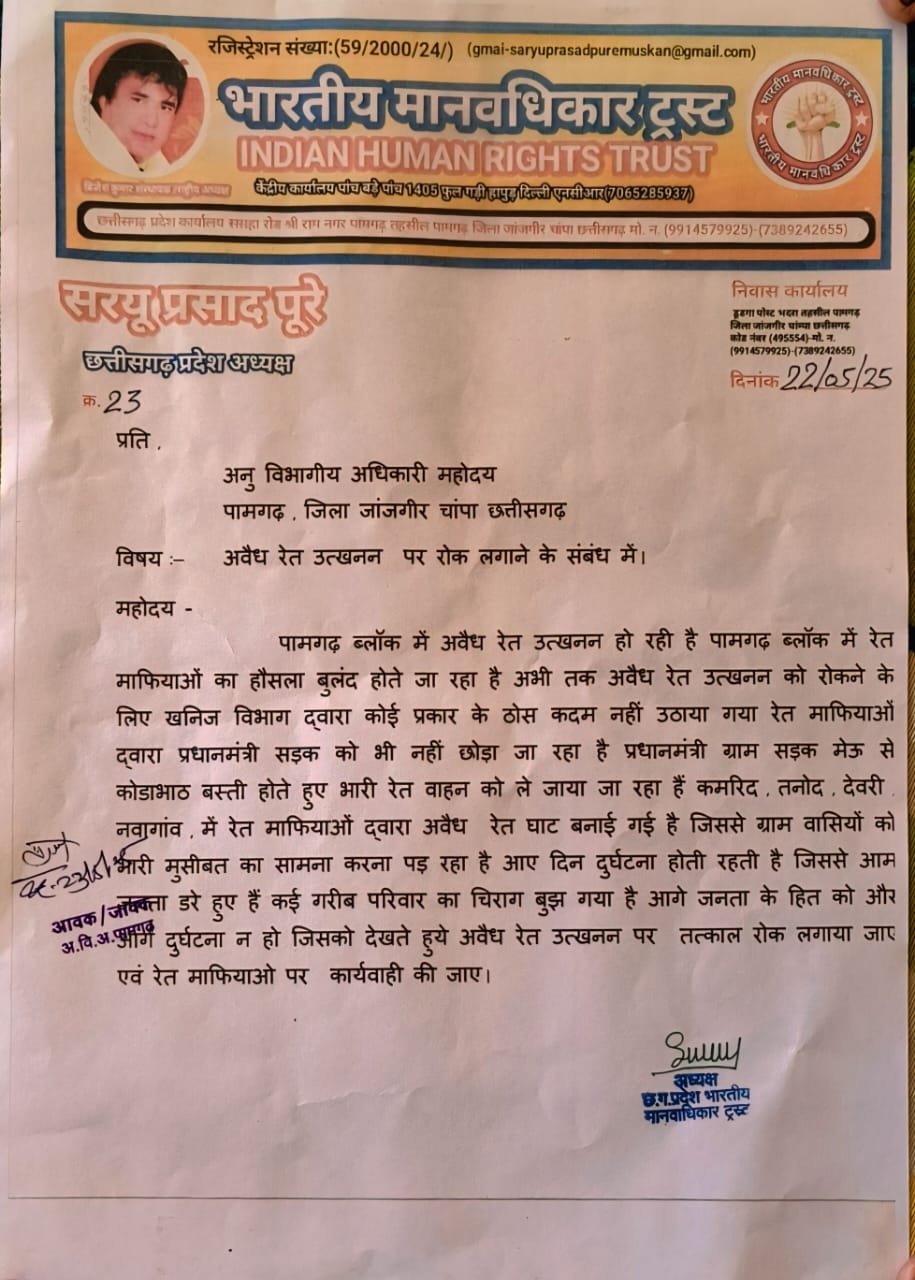 रजिस्ट्रेशन संख्या:(59/2000/24/) (gmai-saryuprasadpuremuskan@gmail.com)
भारतीय मानवधिकार ट्रस्ट
INDIAN HUMAN RIGHTS TRUST
केंद्रीय कार्यालय पांच बड़े पांच 1405 फुल गढ़ी हापुड़ दिल्ली एनसीआर(7065285937)
ब्रिजेश कुमार संस्थापक राष्ट्रीय अध्यक्ष
भारतीय मानवधिकार ट्रस्ट
भारतीय मानवधिकार ट्रस्ट
छत्तीसगढ़ प्रदेश कार्यालय ससहा रोड श्री राम नगर पामगढ़ तहसील पामगढ़ जिला जांजगीर चांपा छत्तीसगढ़ मो. न. (9914579925)-(7389242655)
सरयू प्रसाद पूरे
छत्तीसगढ़ प्रदेश अध्यक्ष
निवास कार्यालय
डुडगा पोस्ट भदरा तहसील पामगढ़
जिला जांजगीर चाम्पा छत्तीसगढ़
कोड नंबर (495554)-मो. न.
(9914579925)-(7389242655)
दिनांक 22/05/25
क्र. 23
प्रति ,
अनु विभागीय अधिकारी महोदय
पामगढ़ , जिला जांजगीर चांपा छत्तीसगढ़
विषय :– अवैध रेत उत्खनन पर रोक लगाने के संबंध में।
महोदय -
पामगढ़ ब्लॉक में अवैध रेत उत्खनन हो रही है पामगढ़ ब्लॉक में रेत
माफियाओं का हौसला बुलंद होते जा रहा है अभी तक अवैध रेत उत्खनन को रोकने के
लिए खनिज विभाग द्वारा कोई प्रकार के ठोस कदम नहीं उठाया गया रेत माफियाओं
द्वारा प्रधानमंत्री सड़क को भी नहीं छोड़ा जा रहा है प्रधानमंत्री ग्राम सड़क मेऊ से
कोडाभाठ बस्ती होते हुए भारी रेत वाहन को ले जाया जा रहा हैं कमरिद , तनोद , देवरी ,
नवागांव , में रेत माफियाओं द्वारा अवैध रेत घाट बनाई गई है जिससे ग्राम वासियों को
भारी मुसीबत का सामना करना पड़ रहा है आए दिन दुर्घटना होती रहती है जिससे आम
जनता डरे हुए हैं कई गरीब परिवार का चिराग बुझ गया है आगे जनता के हित को और
आगे दुर्घटना न हो जिसको देखते हुये अवैध रेत उत्खनन पर तत्काल रोक लगाया जाए
एवं रेत माफियाओ पर कार्यवाही की जाए।
आवक/जावक
अ.वि.अ.पामगढ़
अध्यक्ष
छ.ग.प्रदेश भारतीय
मानवाधिकार ट्रस्ट